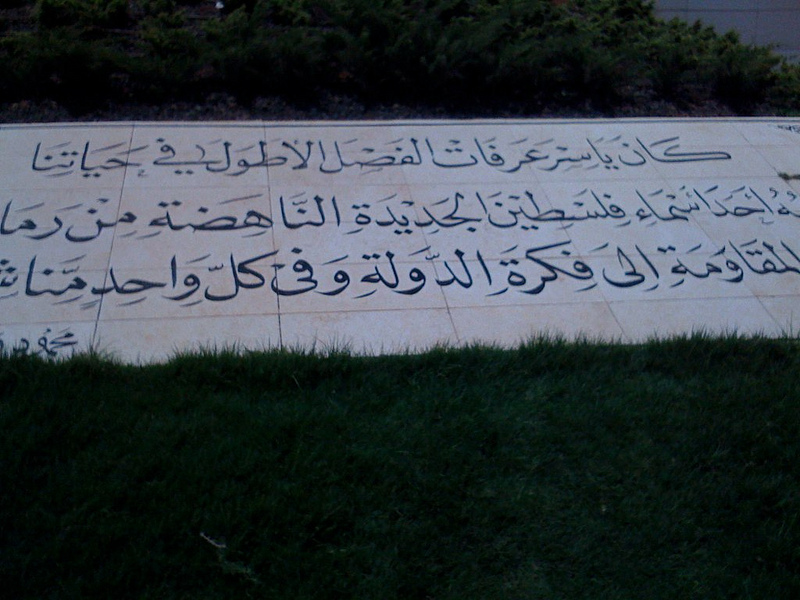 كَانَ يَاسِر عَرَفَات الفَصْلَ الأطوَلَ فِي حَيَاتِنَا
أحَدَ أسْمَاءِ فِلِسْطِيْنَ الجَدِيْدَةِ النَّاهِضَةِ مِنْ رَمَا
المقَاوَمَةِ إلى فِكْرَةِ الدَّولَةِ وَفي كلِّ وَاحِدٍ مِّنا
محمود